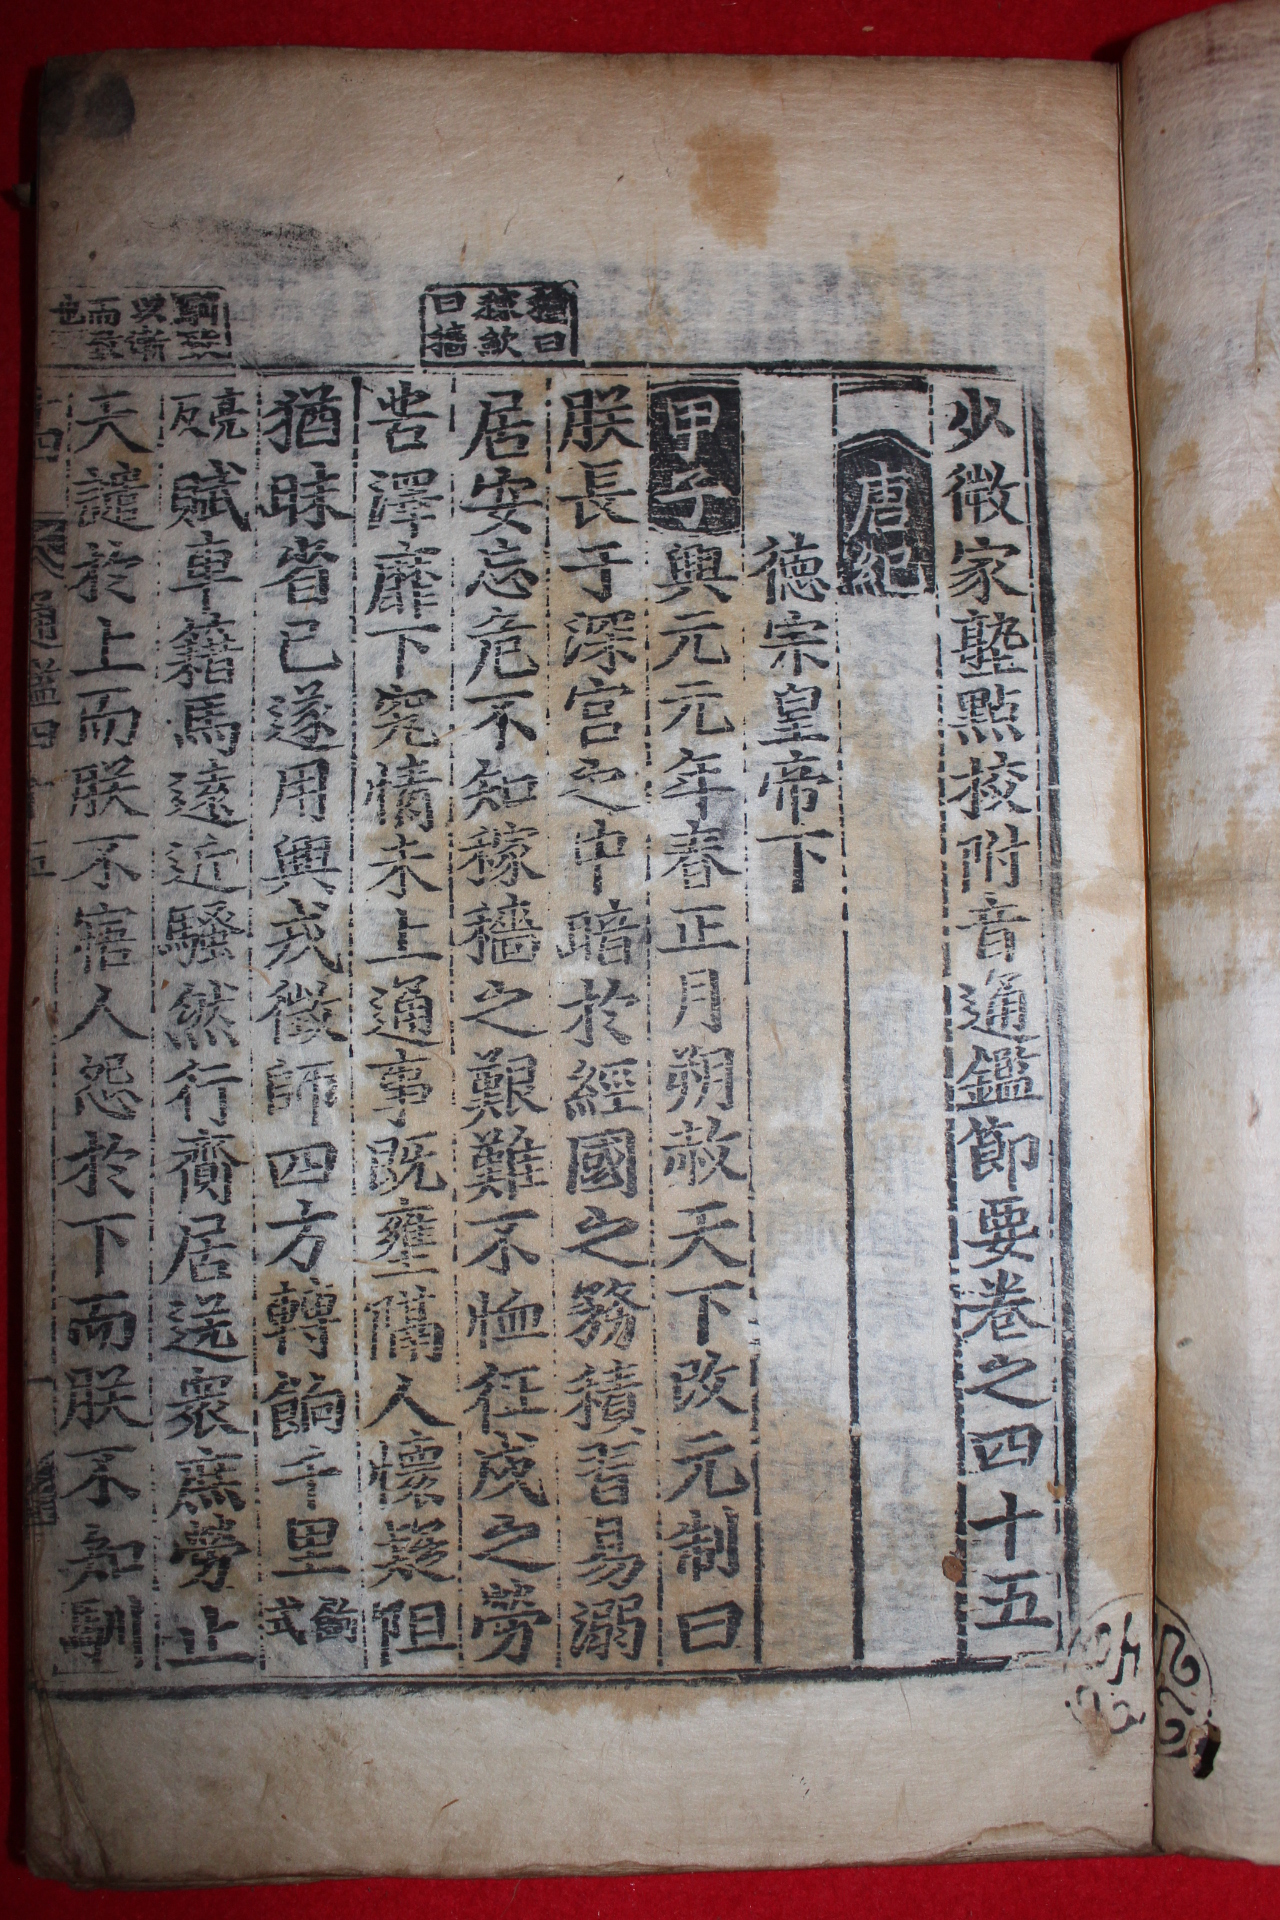 種曰
稼歛
曰穡
馴致
以漸
而至
也
少微家塾點校附音通鑑節要卷之四十五
唐紀
德宗皇帝下
甲子興元元年春正月朔赦天下改元制曰
朕長于深宮之中暗於經國之務積習易溺
居安忘危不知稼穡之艱難不恤征戍之勞
苦澤靡下究情未上通事既壅隔人懷疑阻
猶昧省己遂用興戎徵師四方轉餉千里餉式
亮反賦車籍馬遠近騷然行齎居送衆庶勞止
天譴於上而朕不寤人怨於下而朕不知馴
通鑑四十五